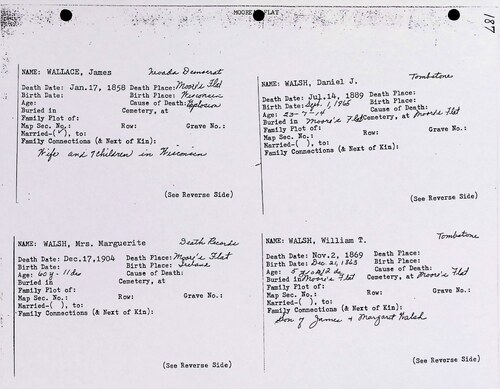 MOORES FLAT
187
NAME: WALLACE, James Nevada Democrat
Death Date: Jan.17, 1858 Death Place: Moore's Flat
Birth Date: Birth Place: Wisconsin
Age: Cause of Death: Explosion
Buried in Cemetery, at
Family Plot of:
Map Sec. No.: Row: Grave No.:
Married-(✓), to:
Family Connections (& Next of Kin):
Wife and 7 children in Wisconsin
(See Reverse Side)
NAME: WALSH, Daniel J. Tombstone
Death Date: Jul.14, 1889 Death Place:
Birth Date: Sept. 1, 1865 Birth Place:
Age: 23-7-14 Cause of Death:
Buried in Moore's Flat Cemetery, at Moore's Flat
Family Plot of:
Map Sec. No.: Row: Grave No.:
Married-( ), to:
Family Connections (& Next of Kin):
(See Reverse Side)
NAME: WALSH, Mrs. Marguerite Death Records
Death Date: Dec.17,1904 Death Place: Moore's Flat
Birth Date: Birth Place: Ireland
Age: 60 y - 11 ds Cause of Death:
Buried in Cemetery, at
Family Plot of:
Map Sec. No.: Row: Grave No.:
Married-( ), to:
Family Connections (& Next of Kin):
(See Reverse Side)
NAME: WALSH, William T. Tombstone
Death Date: Nov.2, 1869 Death Place:
Birth Date: Dec. 21, 1863 Birth Place:
Age: 5 Cause of Death:
Buried in Moore's Flat Cemetery, at Moore's Flat
Family Plot of:
Map Sec. No.: Row: Grave No.:
Married-( ), to:
Family Connections (& Next of Kin):
Son of James + Margaret Walsh
(See Reverse Side)